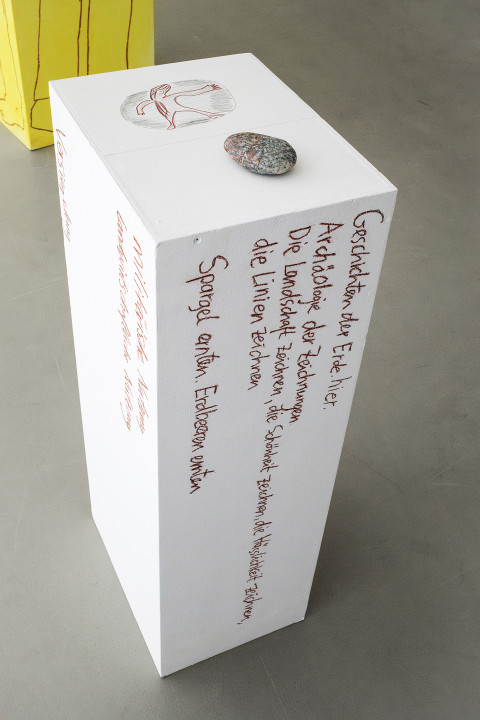 Geschichten der Erde. hier.
Archäologie der Zeichnungen
Die Landschaft zeichnen, die Schönheit zeichnen, die Hässlichkeit zeichnen,
die Linien zeichnen
Spargel ernten. Erdbeeren ernten
militärische Nutzung
landwirtschaftliche Nutzung